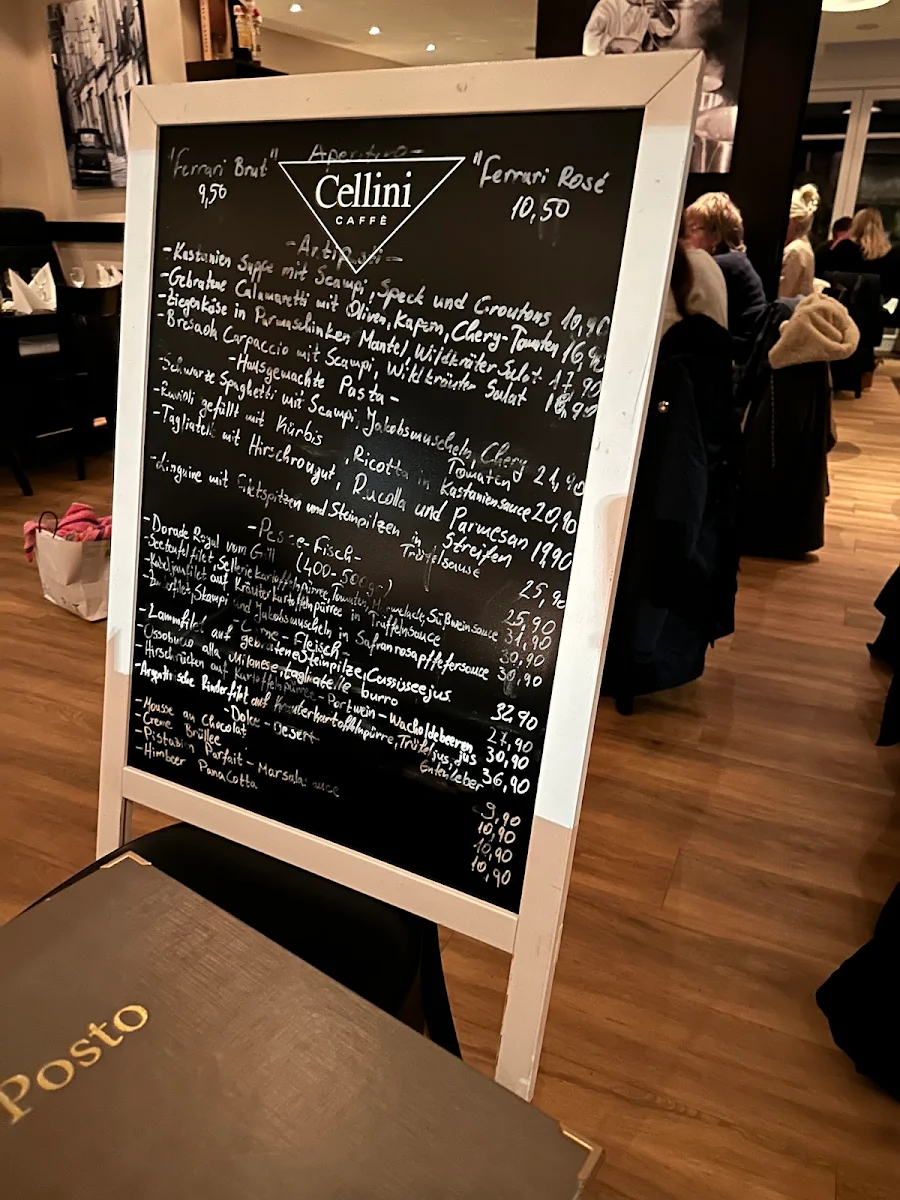 Aperitivo-
"Ferrari Brut" "Ferrari Rosé
9,50 10,50
Cellini
CAFFÈ
-Antipasti-
-Kastanien Suppe mit Scampi, Speck und Croutons 10,90
-Gebratene Calamaretti mit Oliven, Kapern, Chery-Tomaten 16,90
-Ziegenkäse in Parmaschinken Mantel, Wildkräter Salat 17,90
-Bresaola Carpaccio mit Scampi, Wildkräuter Salat 18,90
-Hausgemachte Pasta-
-Schwarze Spaghetti mit Scampi, Jakobsmuscheln, Chery Tomaten 21,90
-Ravioli gefüllt mit Kürbis, Ricotta in Kastaniensauce 20,90
-Tagliatelle mit Hirschragut, Rucolla und Parmesan Streifen 19,90
-Linguine mit Filetspitzen und Steinpilzen in Trüffelsause 25,90
-Pesce-Fisch-
-Dorade Royal vom Grill (400-500gr) 25,90
-Seeteufelfilet, Selleriekartoffelpürree, Tomaten, Marmelade, Süßweinsauce 31,90
-Kabeljaufilet auf Kräuterkartoffelnpürree in Trüffelnsauce 30,90
Scampi und Jakobsmuscheln in Safran rosapfeffersauce 30,90
-Carne-Fleisch-
-Lammfilet auf gebratene Steinpilze, Cassisseejus 32,90
-Ossobucco alla Milanese, tagliatelle burro 27,90
-Hirschrücken auf Kartoffelnpürree-Portwein-Wacholdebeeren jus 30,90
-Argentinische Rinderfilet auf Kräuterkartoffelnpürre, Trüffeljus, Entenleber 36,90
-Dolce-Desert-
-Mousse au Chocolat 9,90
-Creme Brüllee 10,90
-Pistazien Parfait-Marsalasauce 10,90
-Himbeer PanaCotta 10,90
Posto